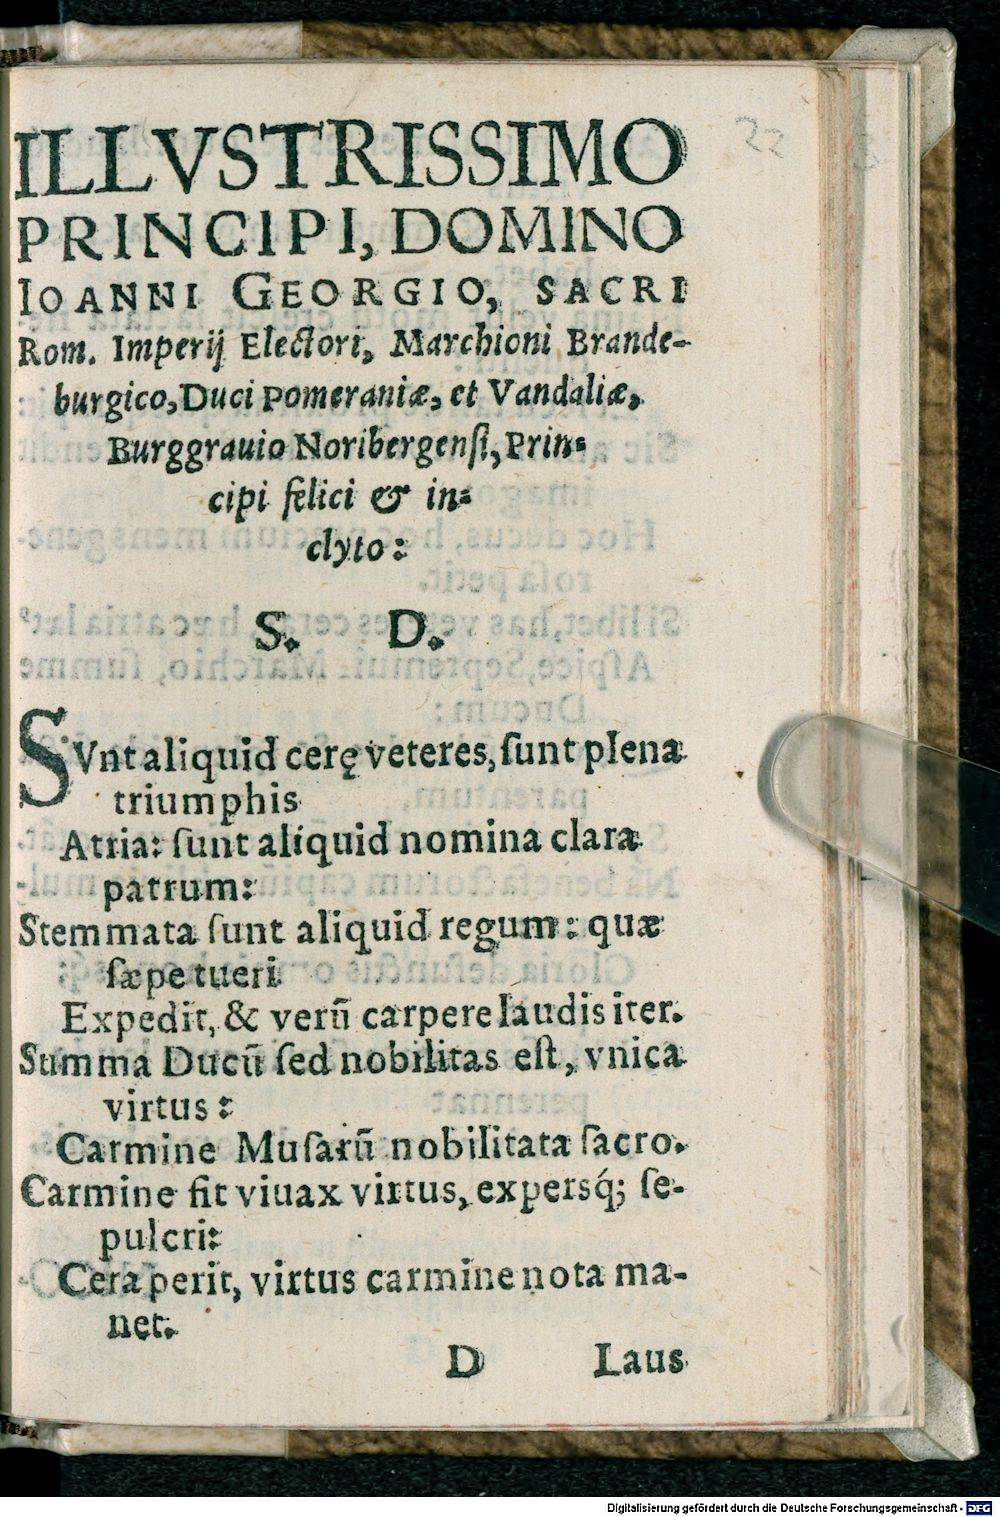 22
ILLVSTRISSIMO
PRINCIPI, DOMINO
IOANNI GEORGIO, SACRI
Rom. Imperij Electori, Marchioni Brande-
burgico, Duci Pomeraniæ, et Vandaliæ,
Burggrauio Noribergenſi, Prin-
cipi felici & in-
clyto:
S. D.
SVnt aliquid cerę veteres, ſunt plena
triumphis
Atria: ſunt aliquid nomina clara
patrum:
Stemmata ſunt aliquid regum: quæ
ſæpe tueri
Expedit, & verũ carpere laudis iter.
Summa Ducũ ſed nobilitas eſt, vnica
virtus:
Carmine Muſarũ nobilitata ſacro.
Carmine fit viuax virtus, expersq́; ſe-
pulcri:
Cera perit, virtus carmine nota ma-
net.
D Laus
Digitalisierung gefördert durch die Deutsche Forschungsgemeinschaft - DFG